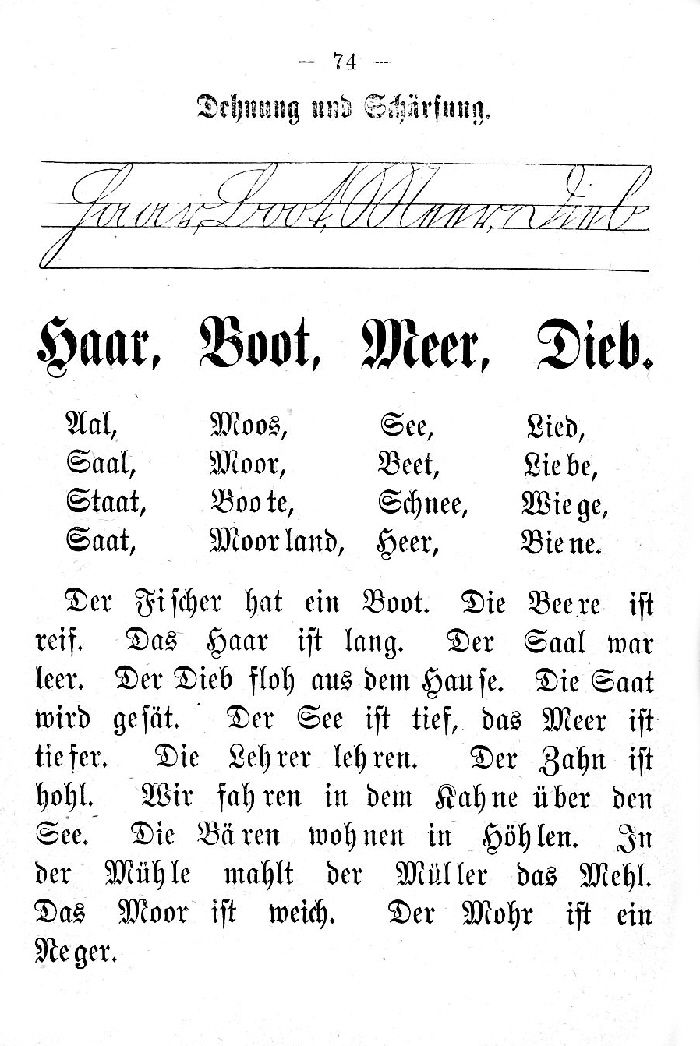 — 74 —
Dehnung und Schärfung.
Haar, Boot, Meer, Dieb
Haar, Boot, Meer, Dieb.
Aal, Moos, See, Lied,
Saal, Moor, Beet, Liebe,
Staat, Boote, Schnee, Wiege,
Saat, Moorland, Heer, Biene.
Der Fischer hat ein Boot. Die Beere ist
reif. Das Haar ist lang. Der Saal war
leer. Der Dieb floh aus dem Hause. Die Saat
wird gesät. Der See ist tief, das Meer ist
tiefer. Die Lehrer lehren. Der Zahn ist
hohl. Wir fahren in dem Kahne über den
See. Die Bären wohnen in Höhlen. In
der Mühle mahlt der Müller das Mehl.
Das Moor ist weich. Der Mohr ist ein
Neger.